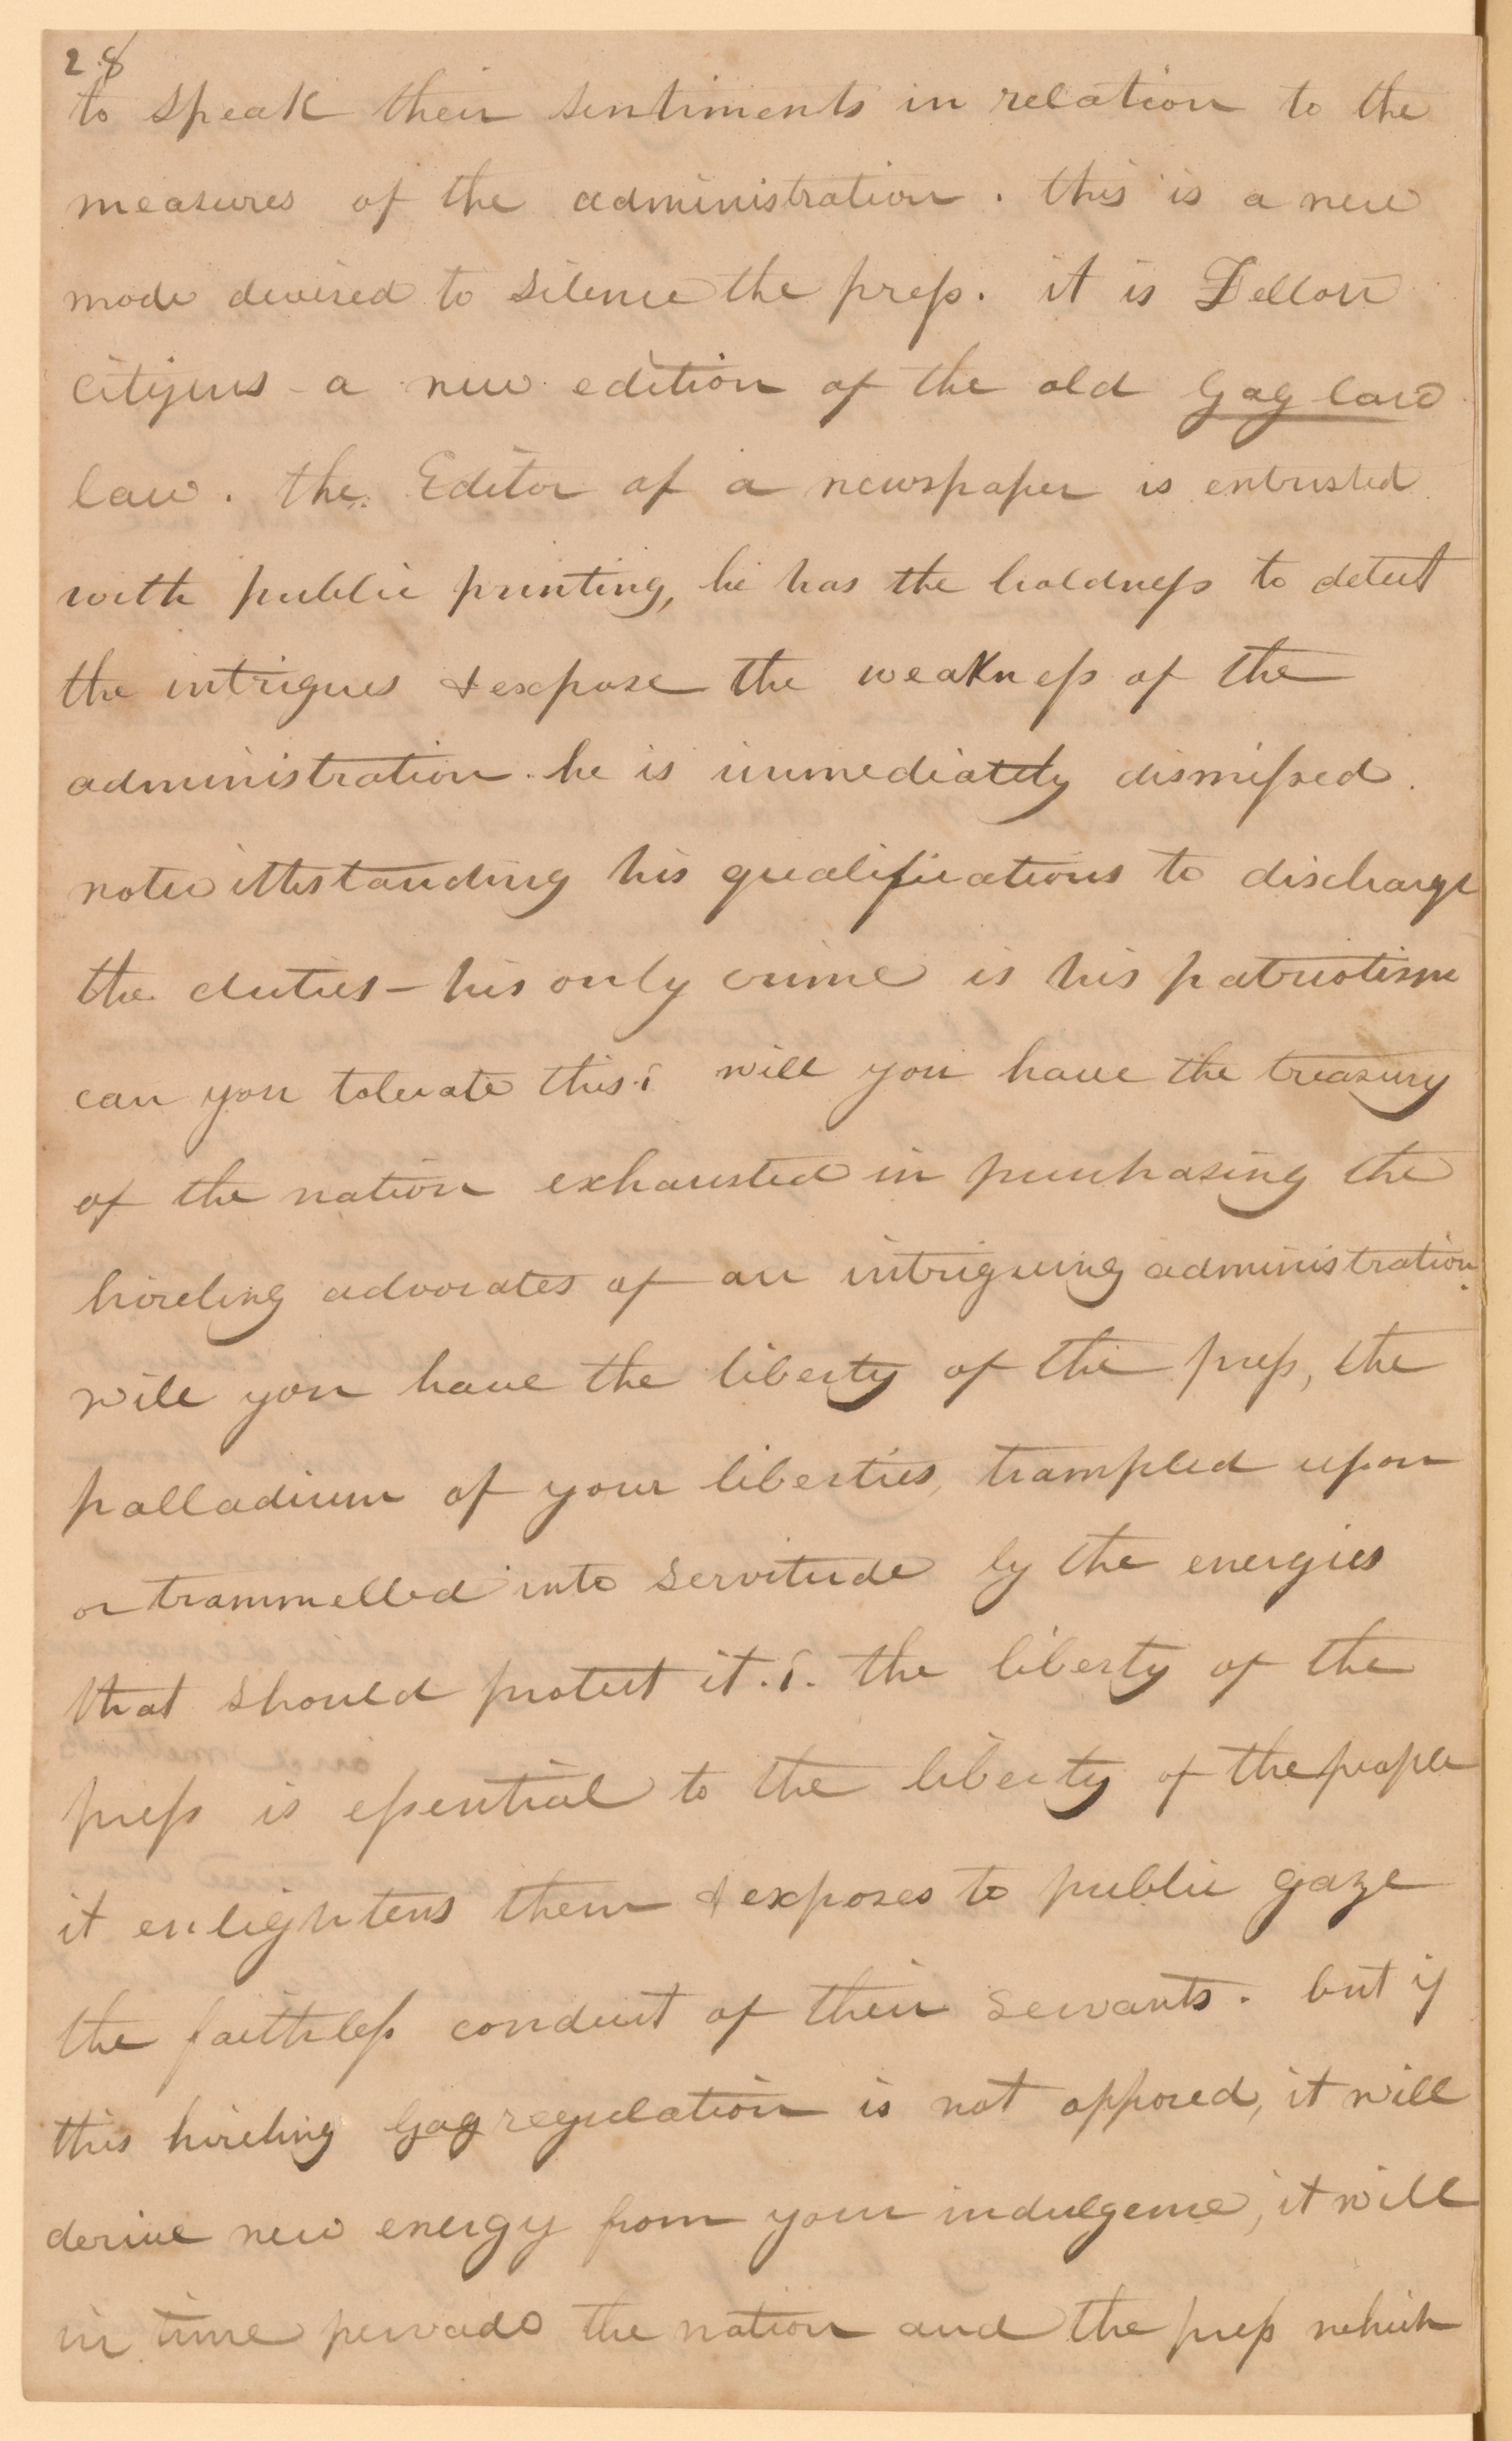 28
to speak their sentiments in relation to the
measures of the administration. this is a new
mode devised to silence the press. it is Fellow
citizens - a new edition of the old Gag law
law. the Editor of a newspaper is entrusted
with public printing, he has the boldness to detect
the intrigues & expose the weakness of the
administration. he is immediately dismissed.
notwithstanding his qualifications to discharge
the duties - his only crime is his patriotism
can you tolerate this? will you have the treasury
of the nation exhausted in purchasing the
hireling advocates of an intriguing administration.
will you have the liberty of the press, the
palladium of your liberties, trampled upon
or trammelled into servitude by the energies
that should protect it.?. the liberty of the
press is essential to the liberty of the people
it enlightens them & exposes to public gaze
the faithless conduct of their servants. but if
this hireling Gag regulation is not opposed, it will
derive new energy from your indulgence, it will
in time pervade the nation and the press which